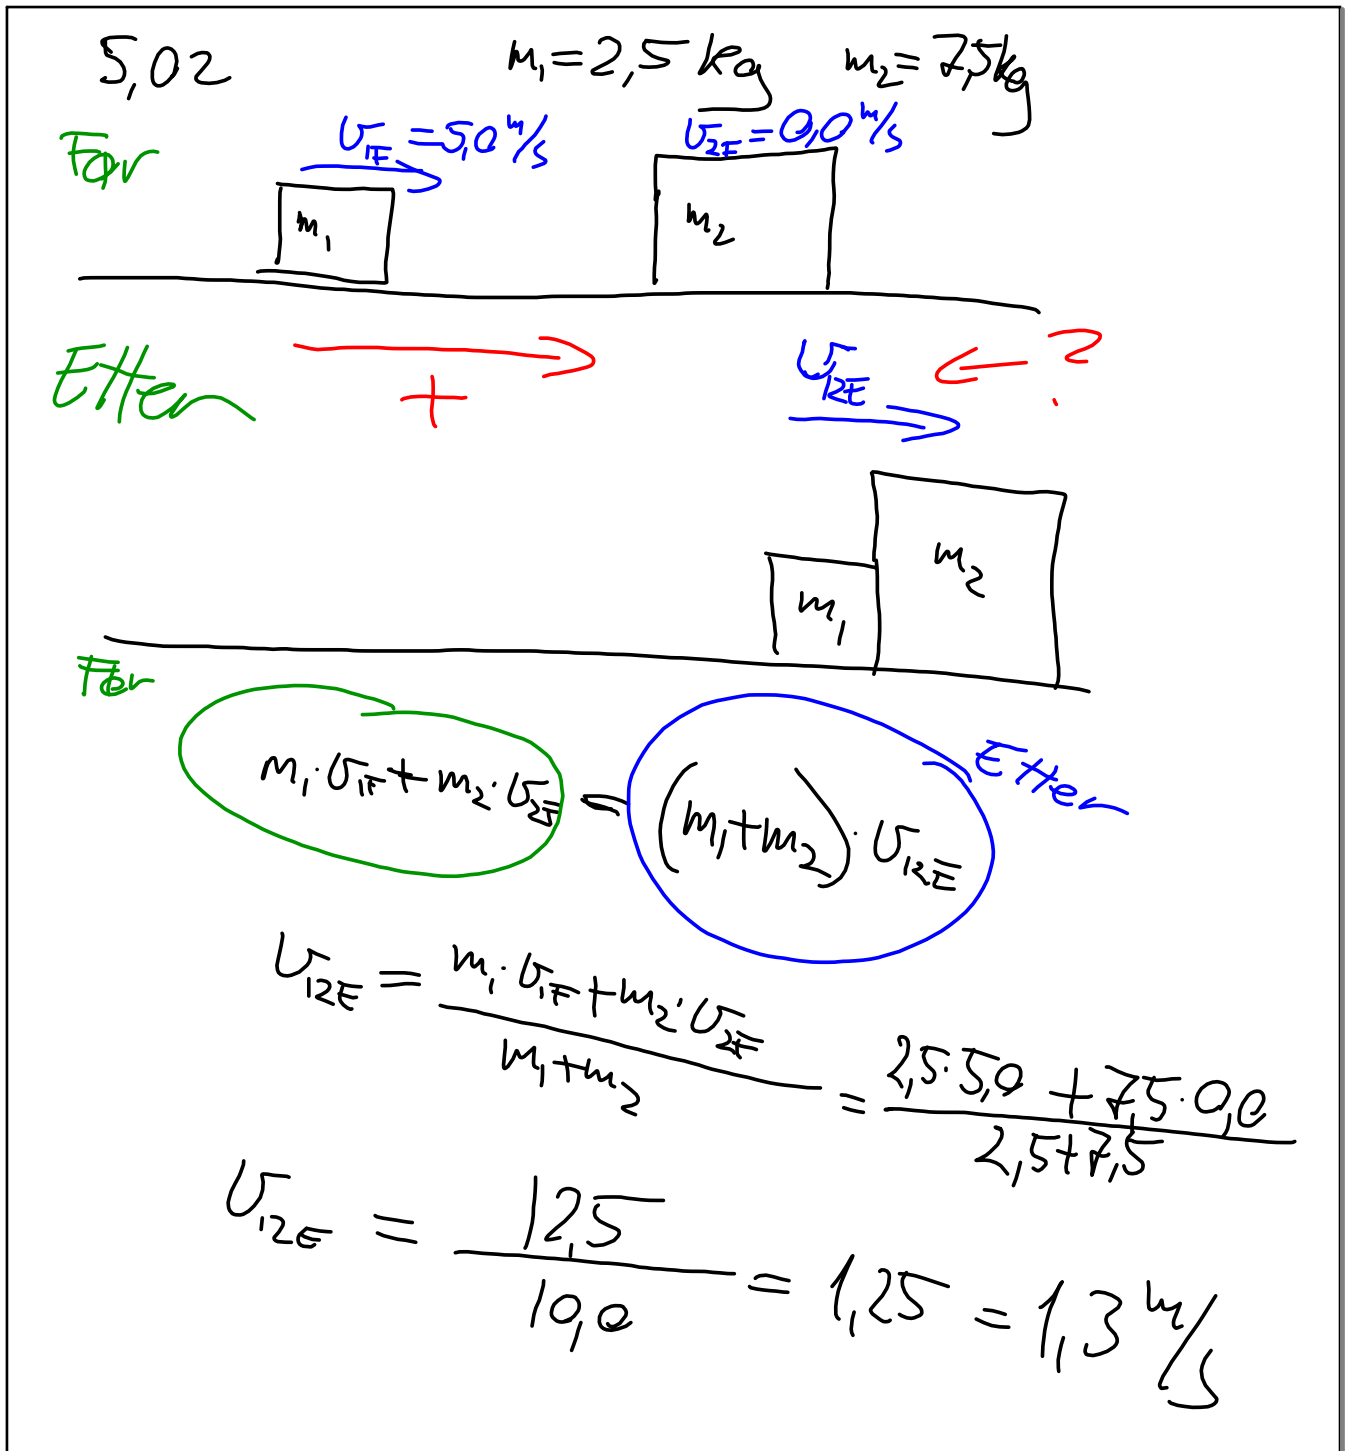 5,02 m₁=2,5 kg m₂=7,5kg
Før v₁F=5,0 m/s v₂F=0,0 m/s
m₁ m₂
Etter + v₁₂E ?
m₁ m₂
Før
m₁·v₁F+m₂·v₂F = (m₁+m₂)·v₁₂E Etter
v₁₂E = (m₁·v₁F+m₂·v₂F)/(m₁+m₂) = (2,5·5,0+7,5·0,0)/(2,5+7,5)
v₁₂E = 12,5/10,0 = 1,25 = 1,3 m/s